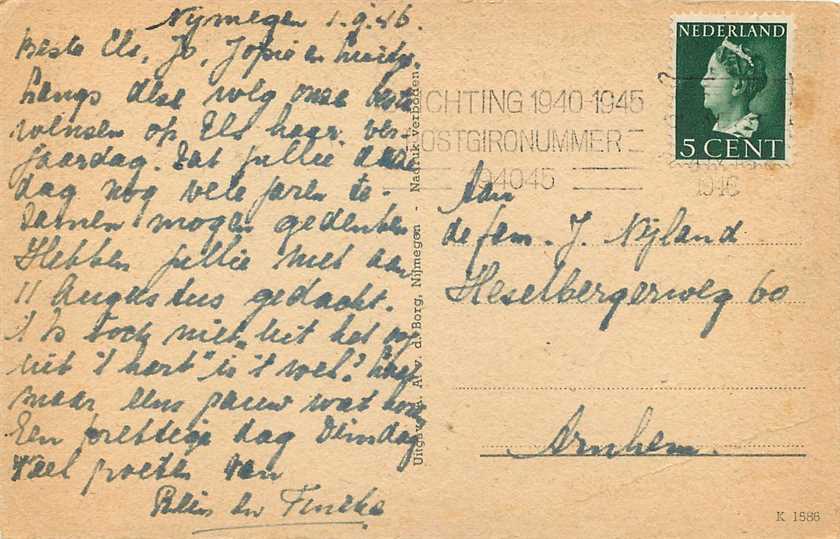 Nymegen 1.9.46.
Beste Els, Jo, Jopie en
Langs deze weg onze beste
wensen op Els haar ver-
jaardag. Dat jullie deze
dag nog vele jaren te-
zamen mogen gedenken
Hebben jullie niet aan
11 Augustus gedacht.
't Is toch niet uit het oog
uit 't hart" is 't wel?
maar eens gauw wat
Een prettige dag Dinsdag
Veel groeten van
en
Uitgave A. v. d. Borg, Nijmegen - Nadruk verboden
ICHTING 1940-1945
POSTGIRONUMMER
194045
1946
NEDERLAND
5 CENT
Aan
de fam. J. Nijland
Heselbergerweg 60
Arnhem.
K 1586